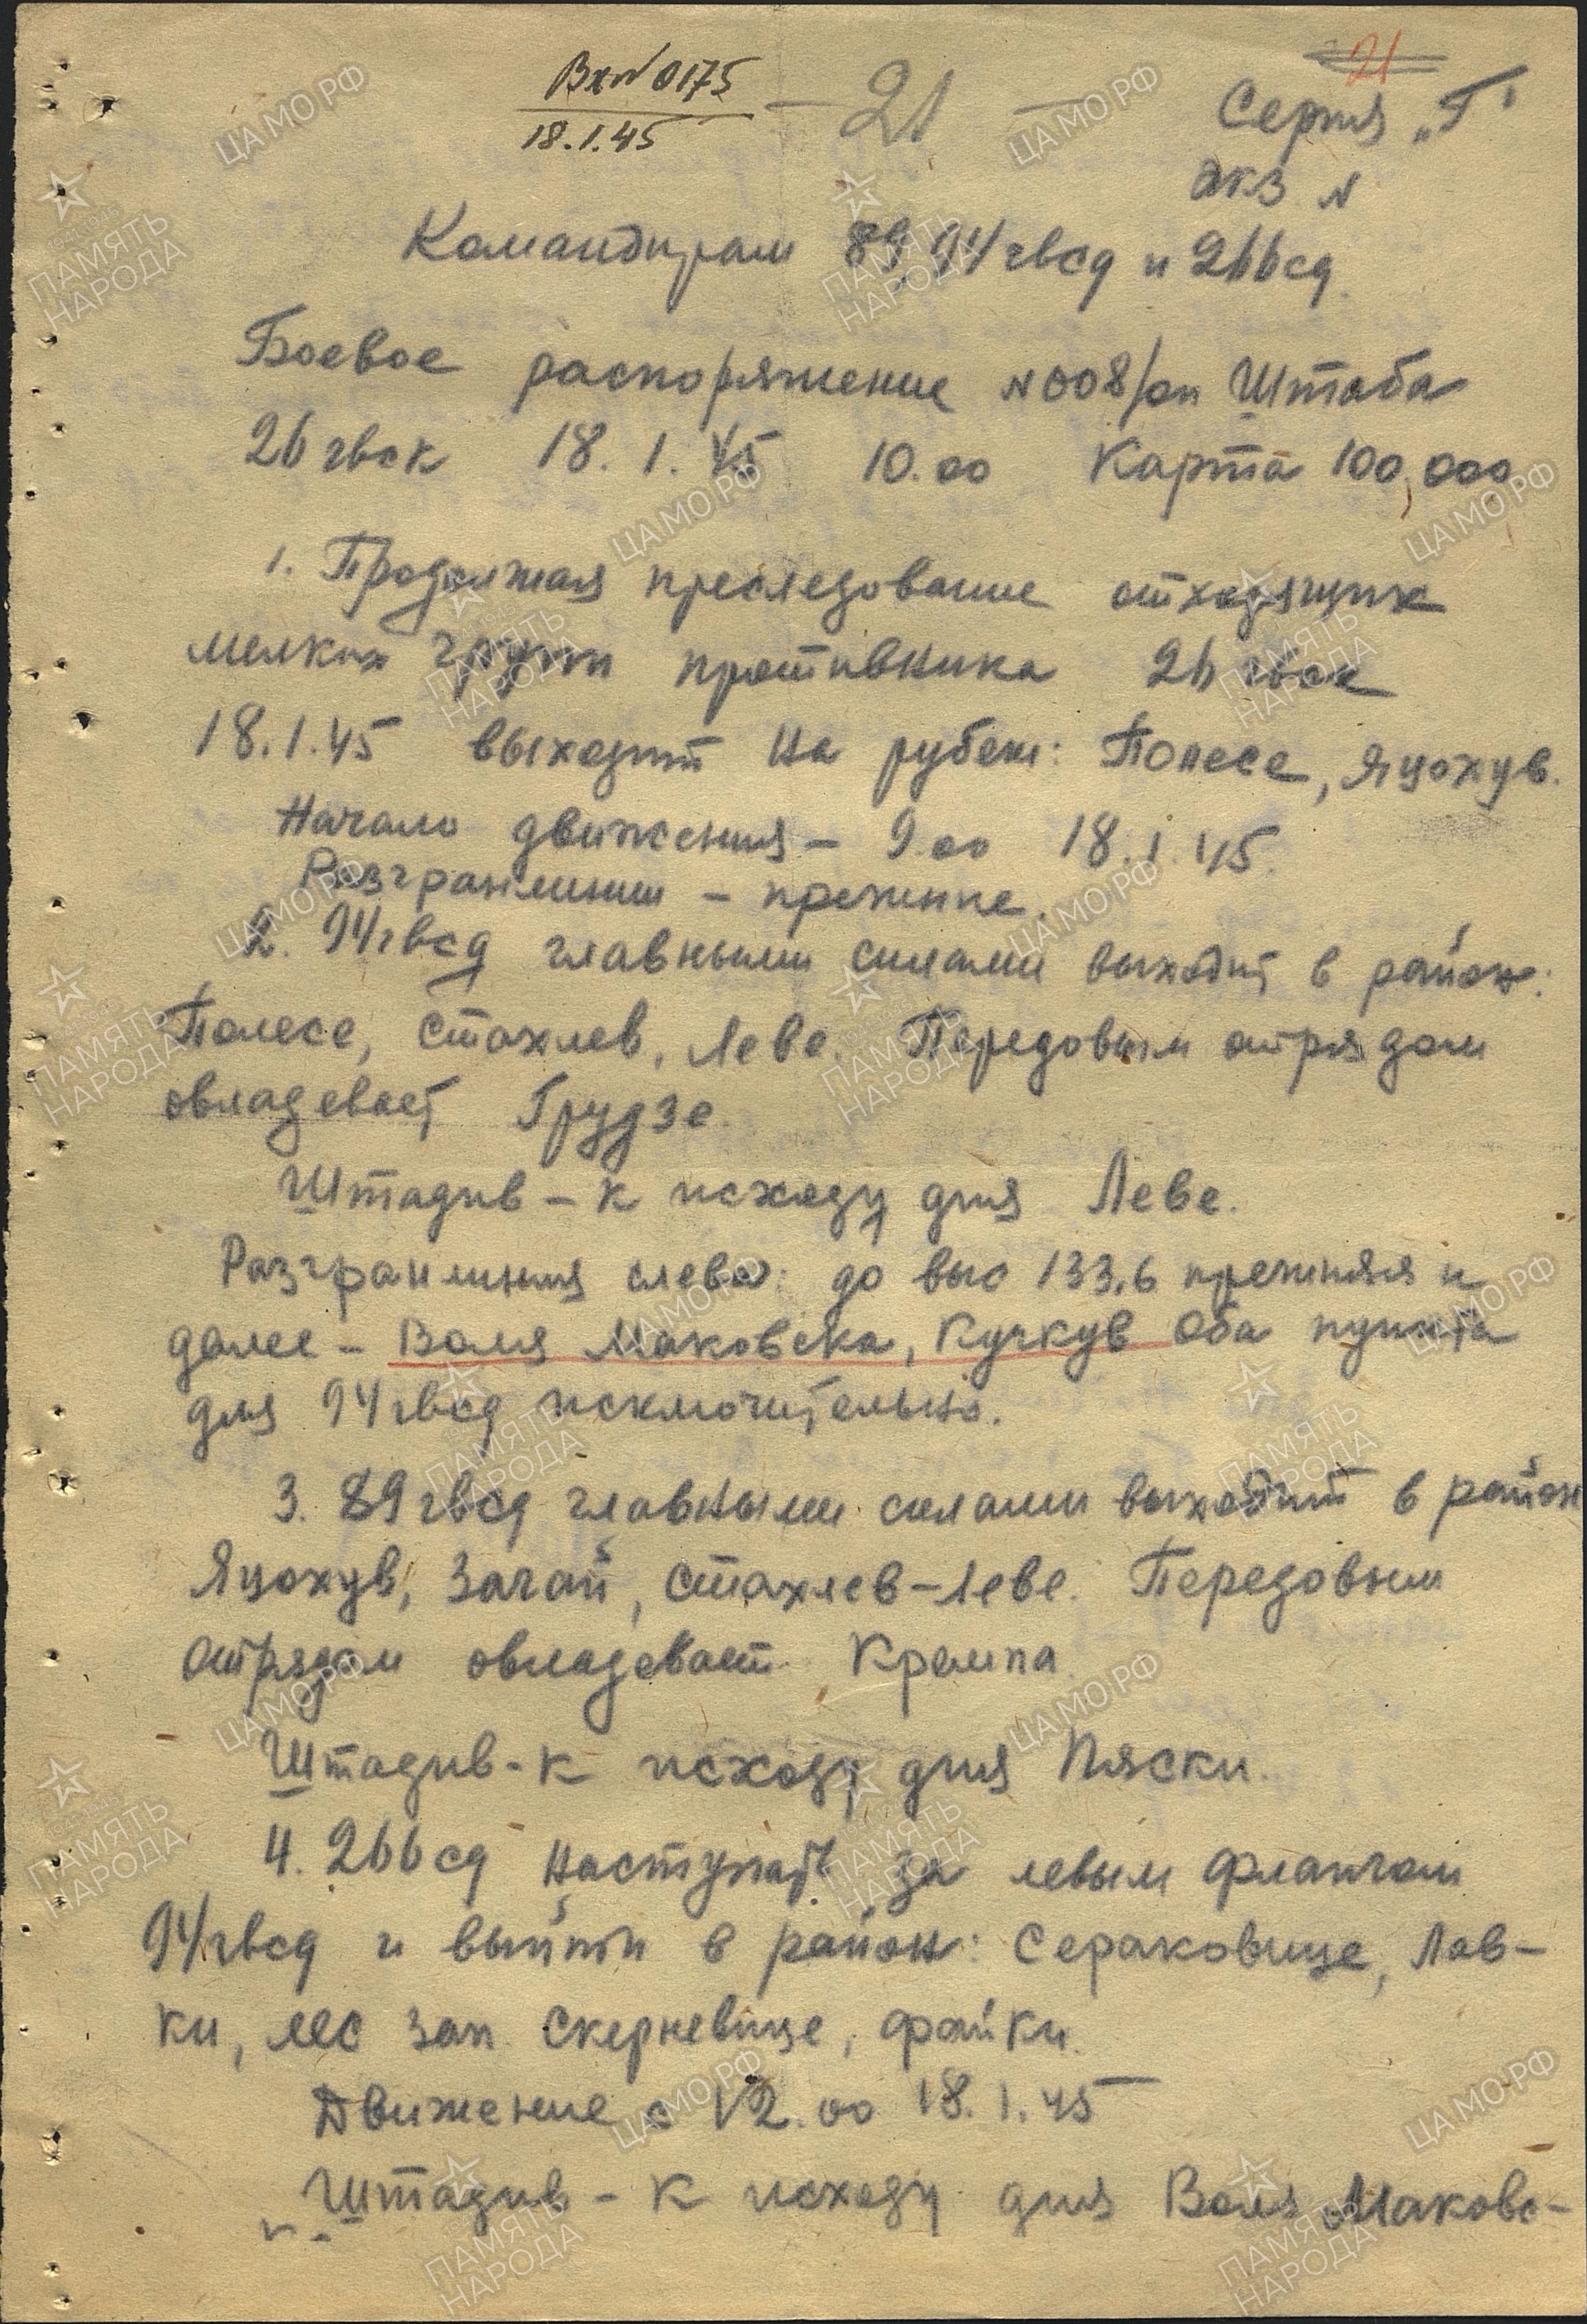 21
Вх№ 0175
18.1.45
- 21 -
Серия „Г"
экз N
Командирам 89, 94 гвсд и 266 сд.
Боевое распоряжение N 008/оп Штаба
26 гвск 18. 1. 45 10.00 Карта 100,000
1. Продолжая преследование отходящих
мелких групп противника 26 гвск
18.1.45 выходит на рубеж: Полесе, Яцохув.
Начало движения – 9.00 18.1.45.
Разгранлинии – прежние.
2. 94 гвсд главными силами выходит в район:
Полесе, Стахлев, Леве. Передовым отрядом
овладевает Грудзе.
Штадив – к исходу дня Леве.
Разгранлиния слева: до выс 133,6 прежняя и
далее – Воля Маковска, Кучкув Оба пункта
для 94 гвсд исключительно.
3. 89 гвсд главными силами выходит в район
Яцохув, Зачай, Стахлев-Леве. Передовым
отрядом овладевает Кремпа.
Штадив - к исходу дня Пяски.
4. 266 сд наступать за левым флангом
94 гвсд и выйти в район: Сераковице, Лав-
ки, лес зап. Скерневице, Файки.
Движение с 12.00 18.1.45
Штадив – к исходу дня Воля Маковс-
ЦАМО.РФ
ПАМЯТЬ
НАРОДА